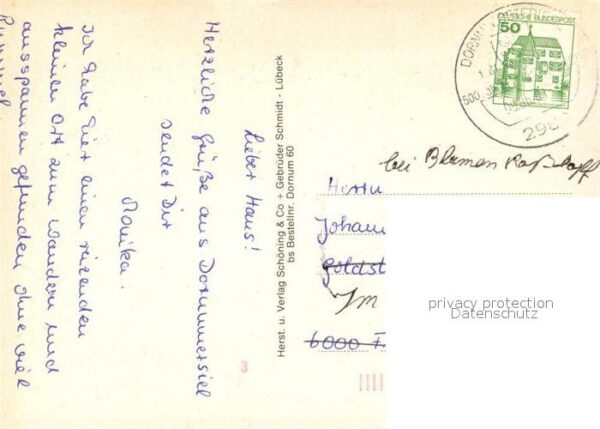 Lieber Hans!
Herzliche Grüße aus Dornumersiel
sendet Dir
Monika.
Ich habe hier einen reizenden
kleinen Ort zum Wandern und
ausspannen gefunden ohne viel
Herst. u. Verlag Schöning & Co + Gebrüder Schmidt - Lübeck
bs Bestellnr. Dornum 60
DEUTSCHE BUNDESPOST
50
DORNUM
500
298
bei Blumen
Herrn
Johann
Goldst
Im
6000 F
privacy protection
Datenschutz
3